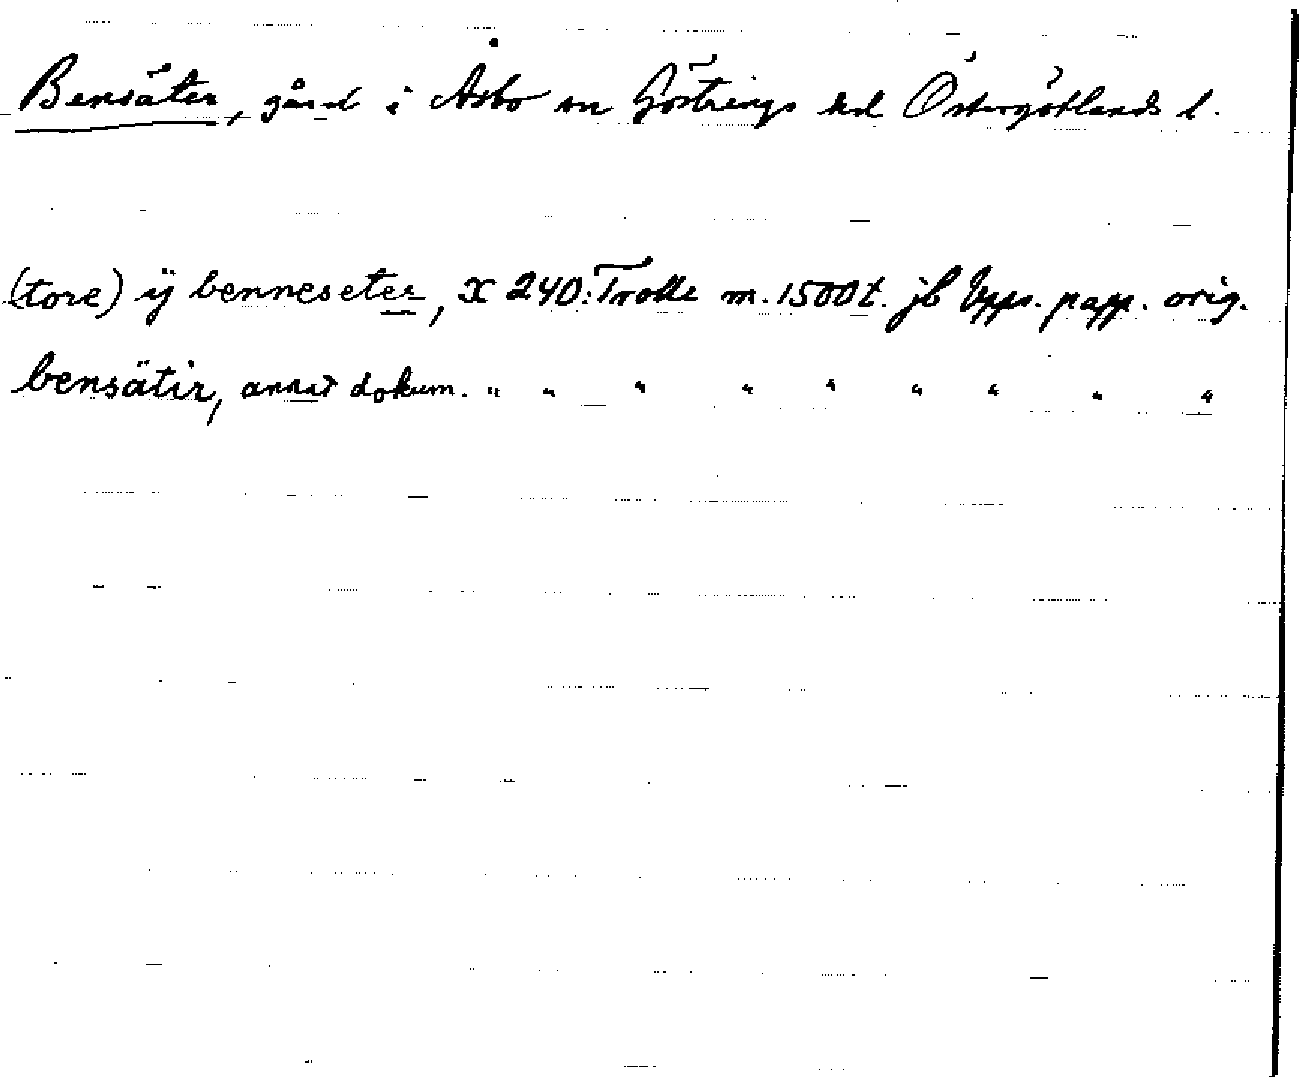 Bensäter, gård i Åsbo sn Göstrings hd Östergötlands l.
(tore) ij benneseter, X 240: Trolle m. 1500 t. jb Upps. papp. orig.
bensätir, annat dokum. " " " " " " " " "